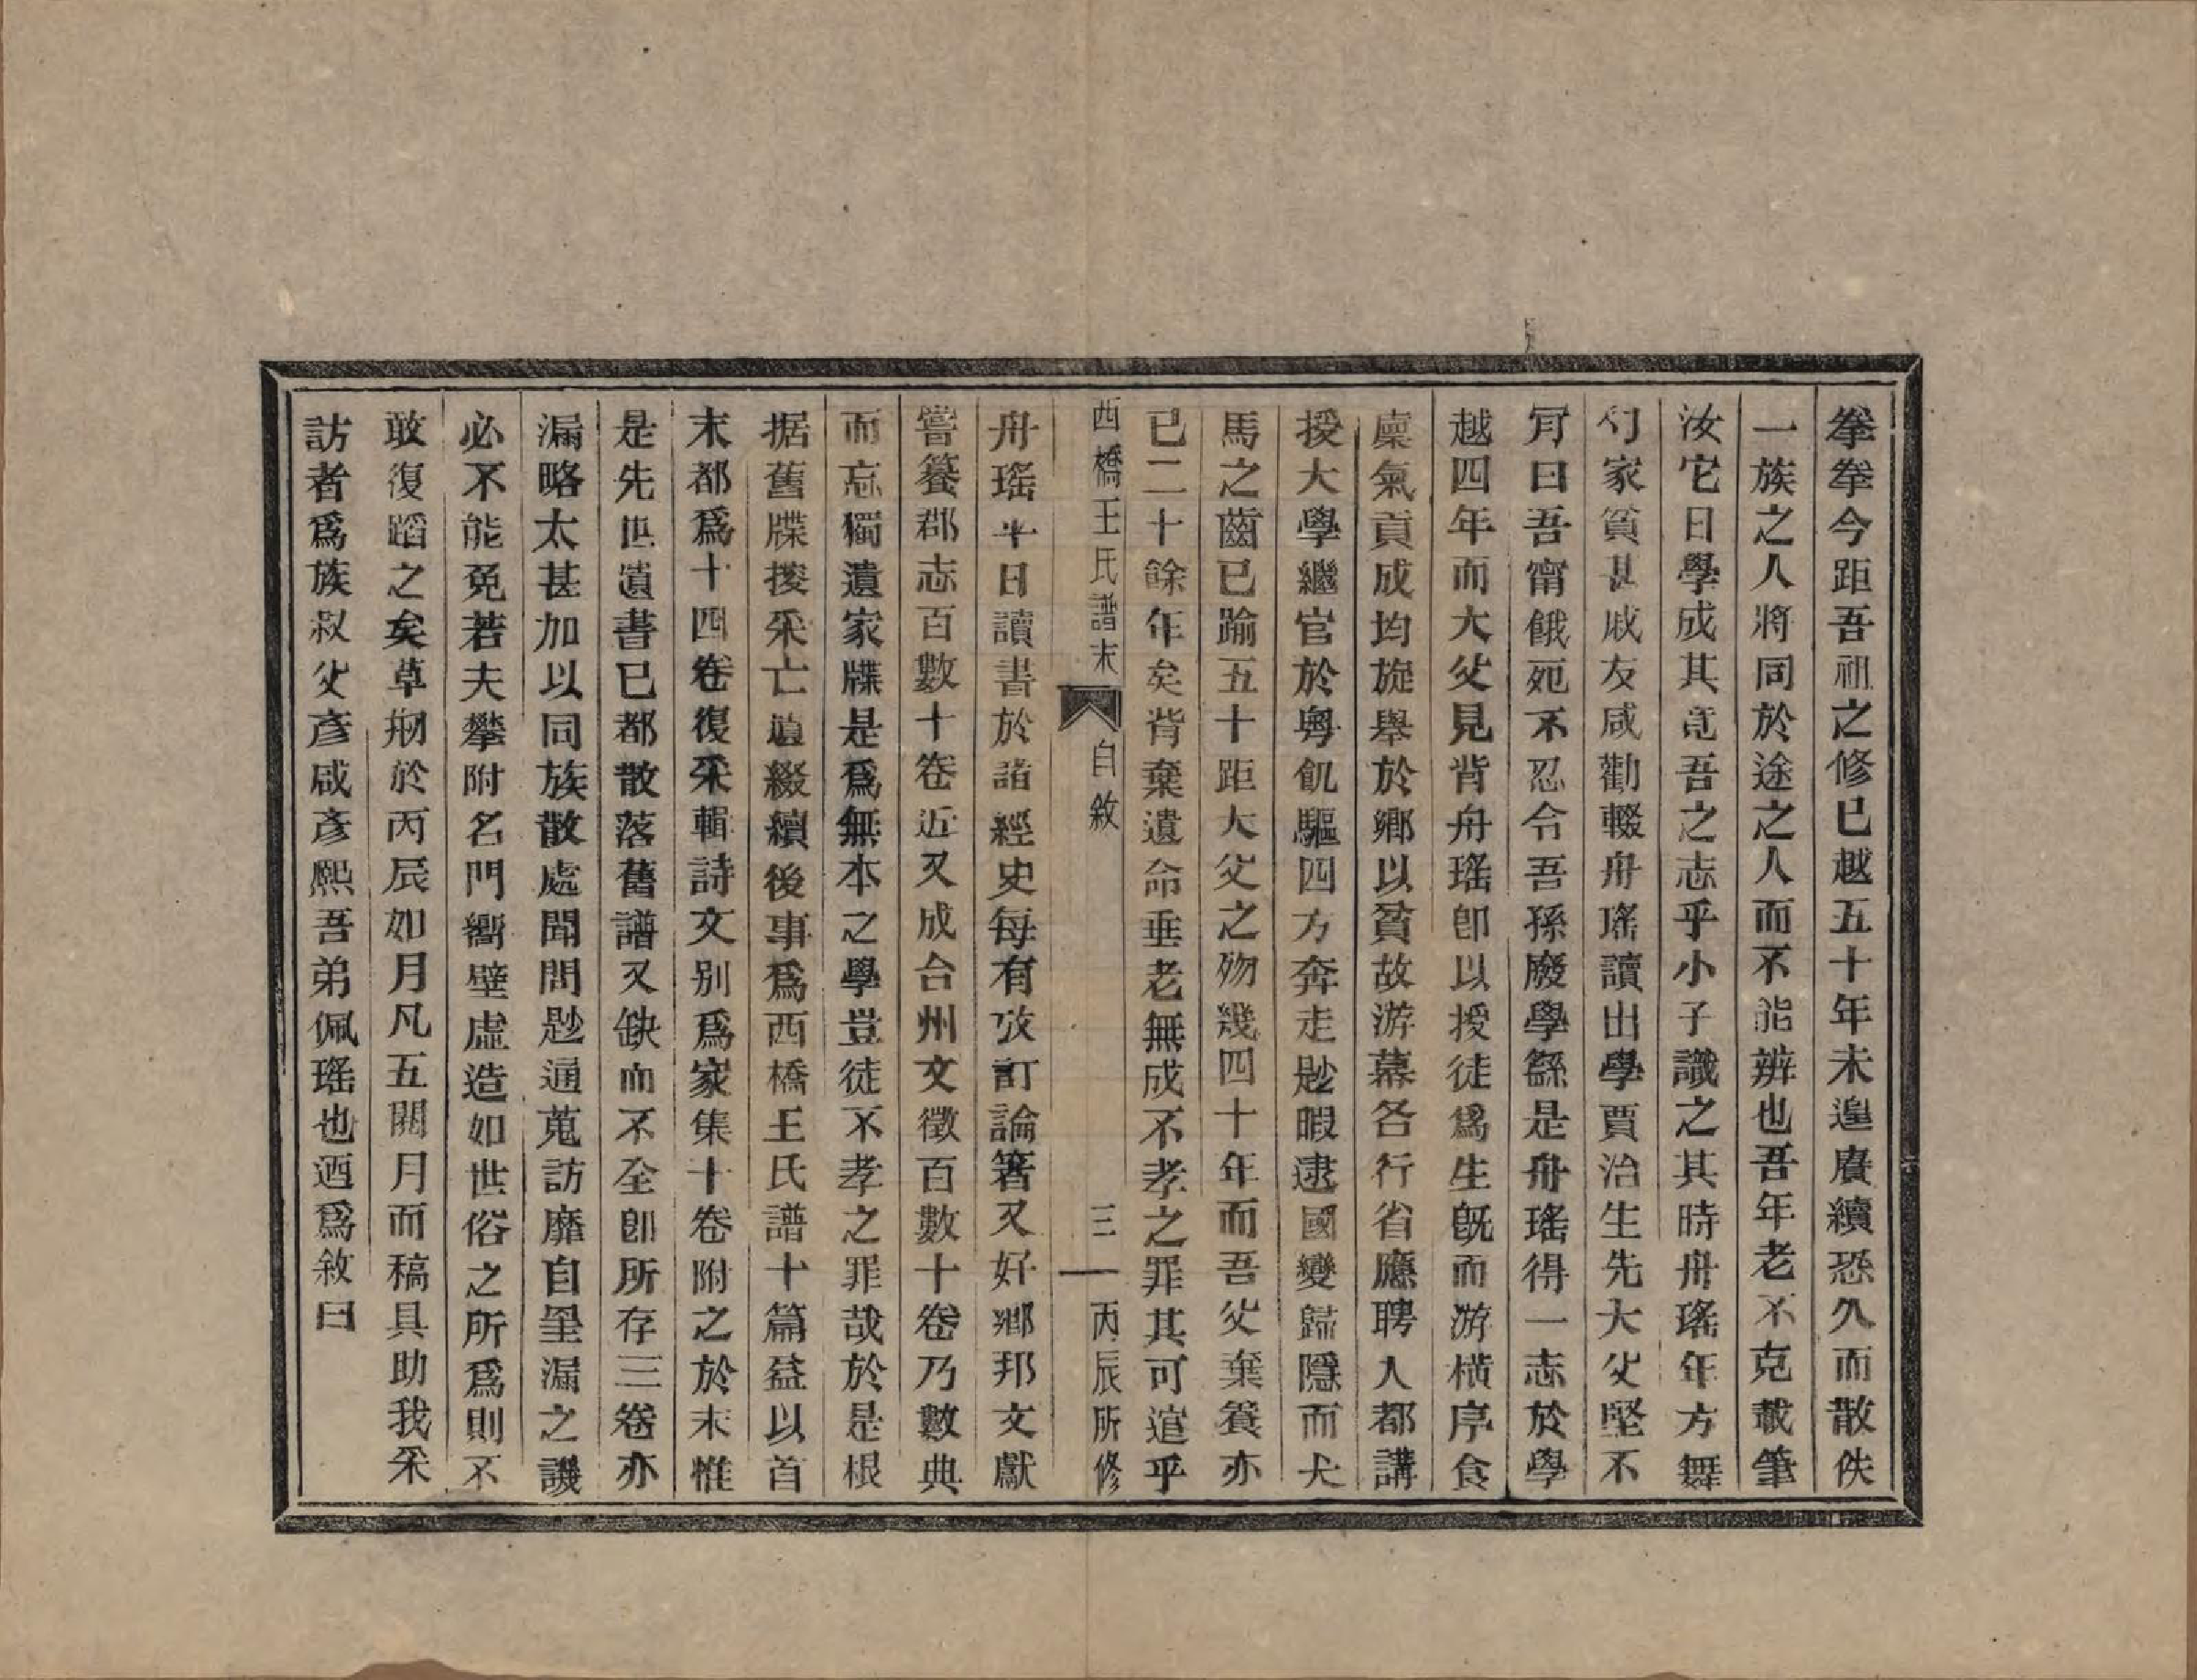 拳拳今距吾祖之修已越五十年未遑賡續恐久而散佚
一族之人將同於途之人而不能辨也吾年老不克載筆
汝它日學成其竟吾之志乎小子識之其時舟瑤年方舞
勺家貧甚戚友咸勸輟舟瑤讀出學賈治生先大父堅不
肎曰吾甯餓死不忍令吾孫廢學繇是舟瑤得一志於學
越四年而大父見背舟瑤卽以授徒爲生旣而游橫序食
廩氣貢成均旋舉於鄉以貧故游幕各行省應聘人都講
授大學繼官於粤飢驅四方奔走尟暇逮國變歸隱而犬
馬之齒已踰五十距大父之歾幾四十年而吾父棄養亦
已二十餘年矣背棄遺命垂老無成不孝之罪其可逭乎
西橋王氏譜末 自敘 三 丙辰所修
舟瑤平日讀書於諸經史每有攷訂論箸又好鄉邦文獻
嘗纂郡志百數十卷近又成台州文徵百數十卷乃數典
而忘獨遺家牒是爲無本之學豈徒不孝之罪哉於是根
据舊牒搜采亡遺綴續後事爲西橋王氏譜十篇益以首
末都爲十四卷復采輯詩文别爲家集十卷附之於末惟
是先世遺書已都散落舊譜又缺而不全卽所存三卷亦
漏略太甚加以同族散處聞問尟通蒐訪靡自罣漏之譏
必不能免若夫攀附名門嚮壁虛造如世俗之所爲則不
敢復蹈之矣草剏於丙辰如月凡五閱月而稿具助我采
訪者爲族叔父彥咸彥熙吾弟佩瑤也迺爲敘曰